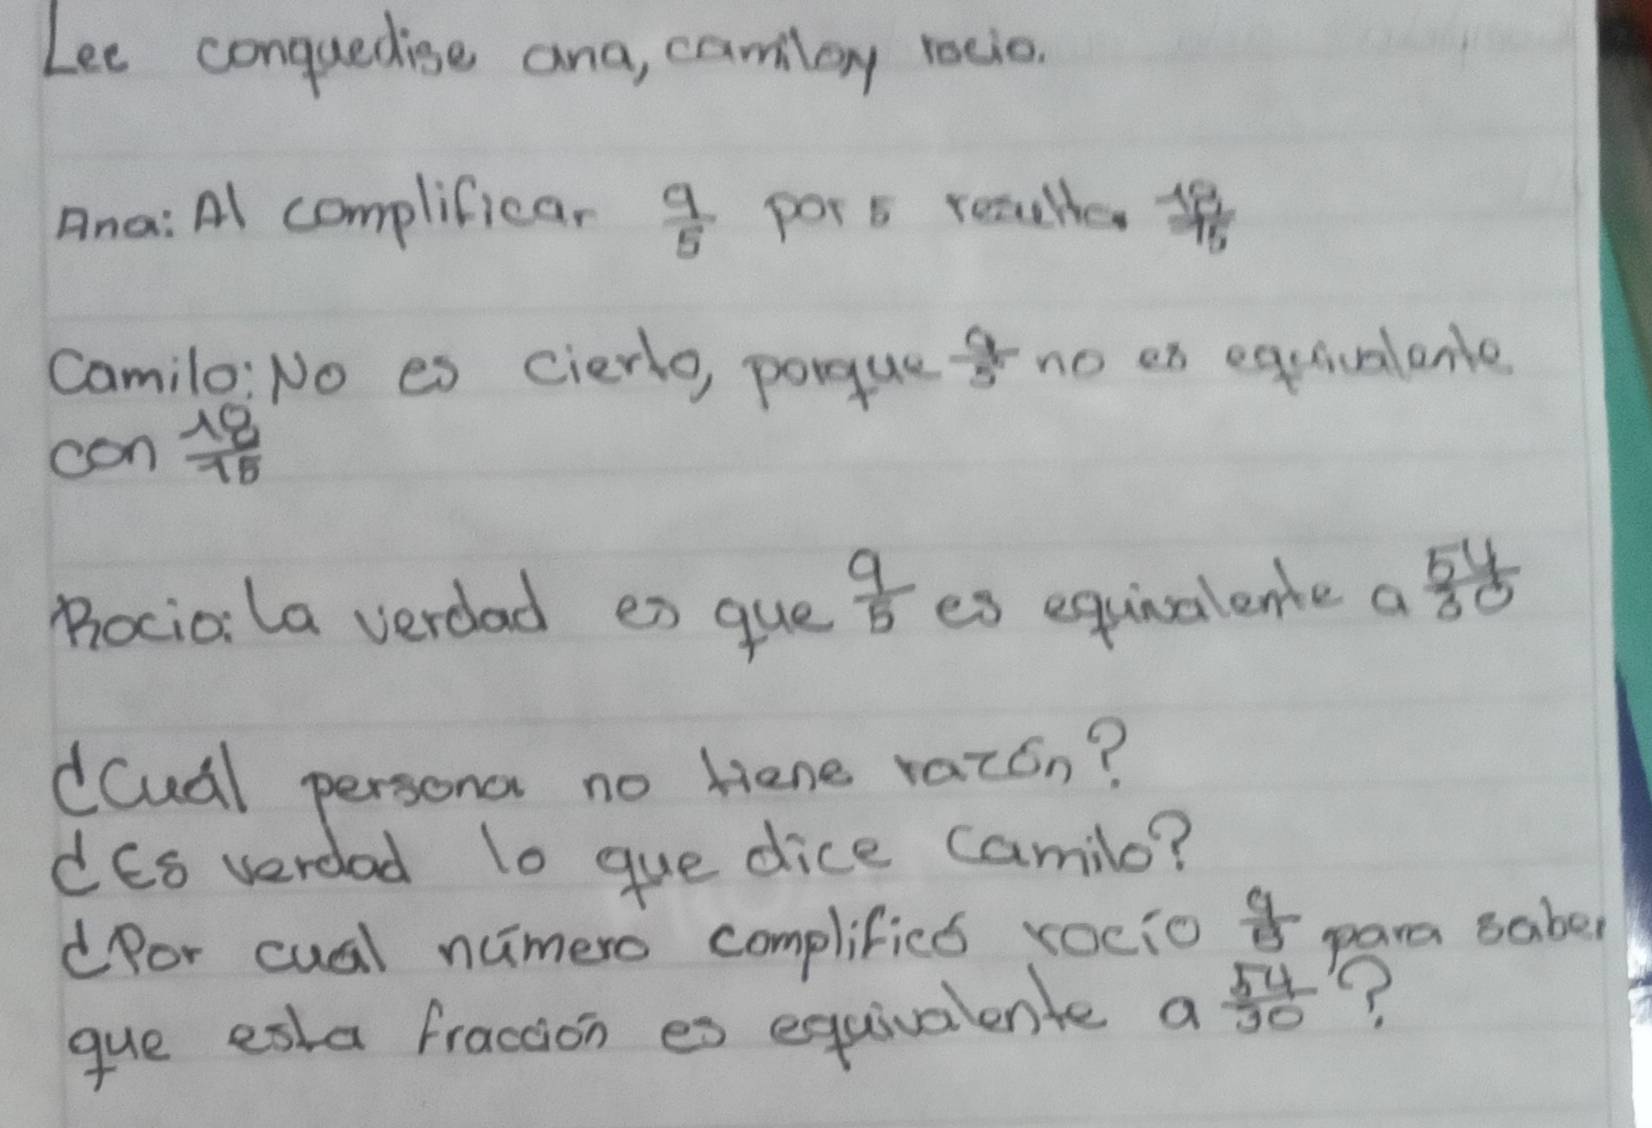 Lee conquedise ana, camiloy rocio.
Ana: Al complificar 9/5 por 5 resulta 18/15
Camilo: No es cierto, porque 9/5 no es equivalente
con 18/15
Rocio: la verdad es que 9/5 es equivalente a 54/30
¿Cuál persona no tiene razón?
¿Es verdad lo que dice Camilo?
¿Por cual número complificó rocío 9/5 para saber
que esta fracción es equivalente a 54/30?